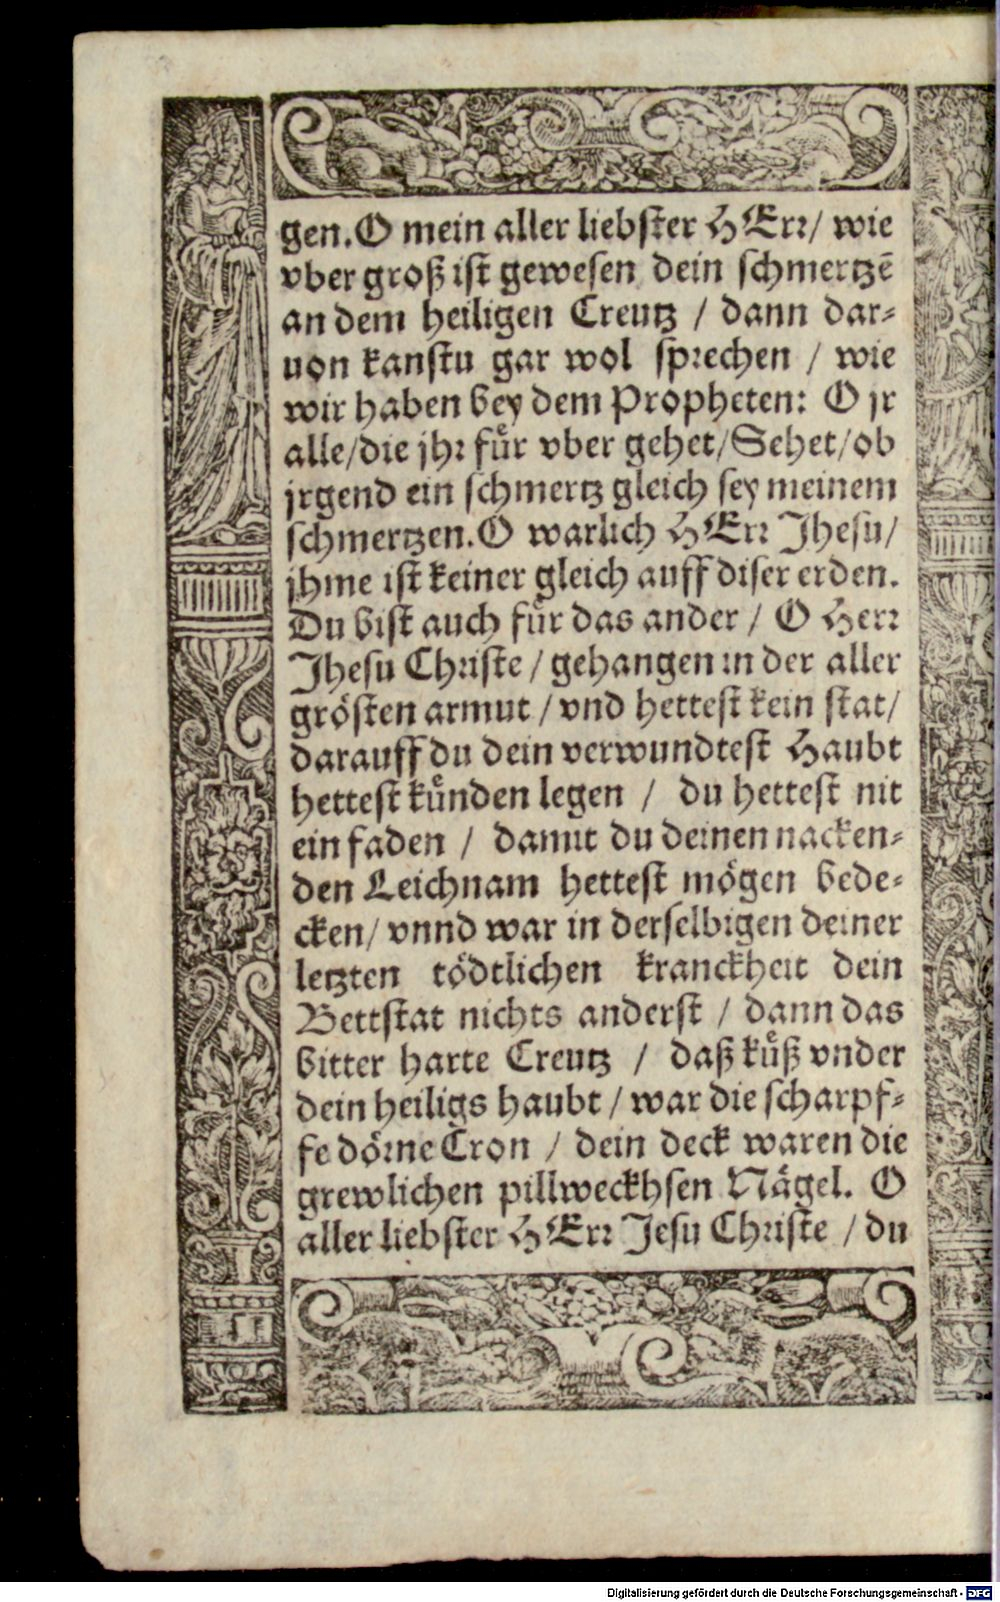 gen. O mein aller liebster HErr/ wie
vber groß ist gewesen dein schmertzē
an dem heiligen Creutz / dann dar-
uon kanstu gar wol sprechen / wie
wir haben bey dem Propheten: O jr
alle/die jhr fuͤr vber gehet/Sehet/ob
jrgend ein schmertz gleich sey meinem
schmertzen. O warlich HErr Jhesu/
jhme ist keiner gleich auff diser erden.
Du bist auch fuͤr das ander / O Herr
Jhesu Christe / gehangen in der aller
groͤsten armut / vnd hettest kein stat/
darauff du dein verwundtest Haubt
hettest kuͤnden legen / du hettest nit
ein faden / damit du deinen nacken-
den Leichnam hettest moͤgen bede-
cken/ vnnd war in derselbigen deiner
letzten toͤdtlichen kranckheit dein
Bettstat nichts anderst / dann das
bitter harte Creutz / daß kuͤß vnder
dein heiligs haubt / war die scharpf-
fe doͤrne Cron / dein deck waren die
grewlichen pillweckhsen Naͤgel. O
aller liebster HErr Jesu Christe / du
Digitalisierung gefördert durch die Deutsche Forschungsgemeinschaft - DFG